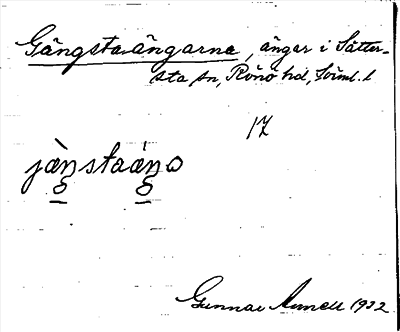 Gängstaängarna, ängar i Sätter-
sta sn, Rönö hd, Söml. l
17
jàŋstaáŋɷ
Gunnar 1932